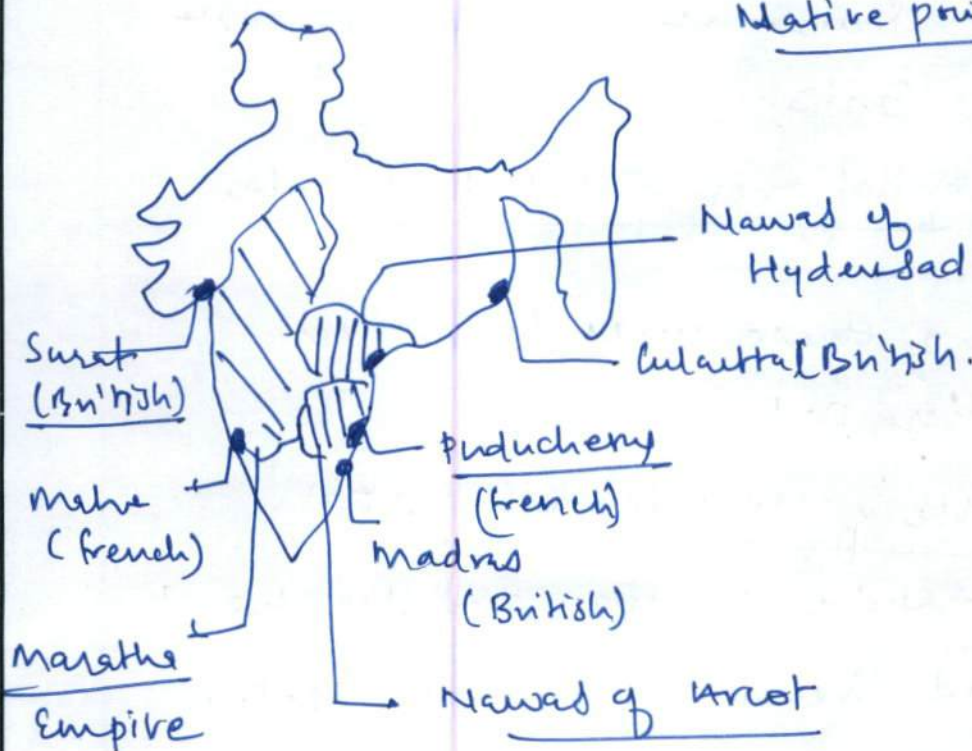 Native pow
Nawab of
Hyderabad
Surat
(British)
Calcutta (British.
Puducherry
(french)
Mahe
(french)
Madras
(British)
Maratha
Empire
Nawab of Arcot